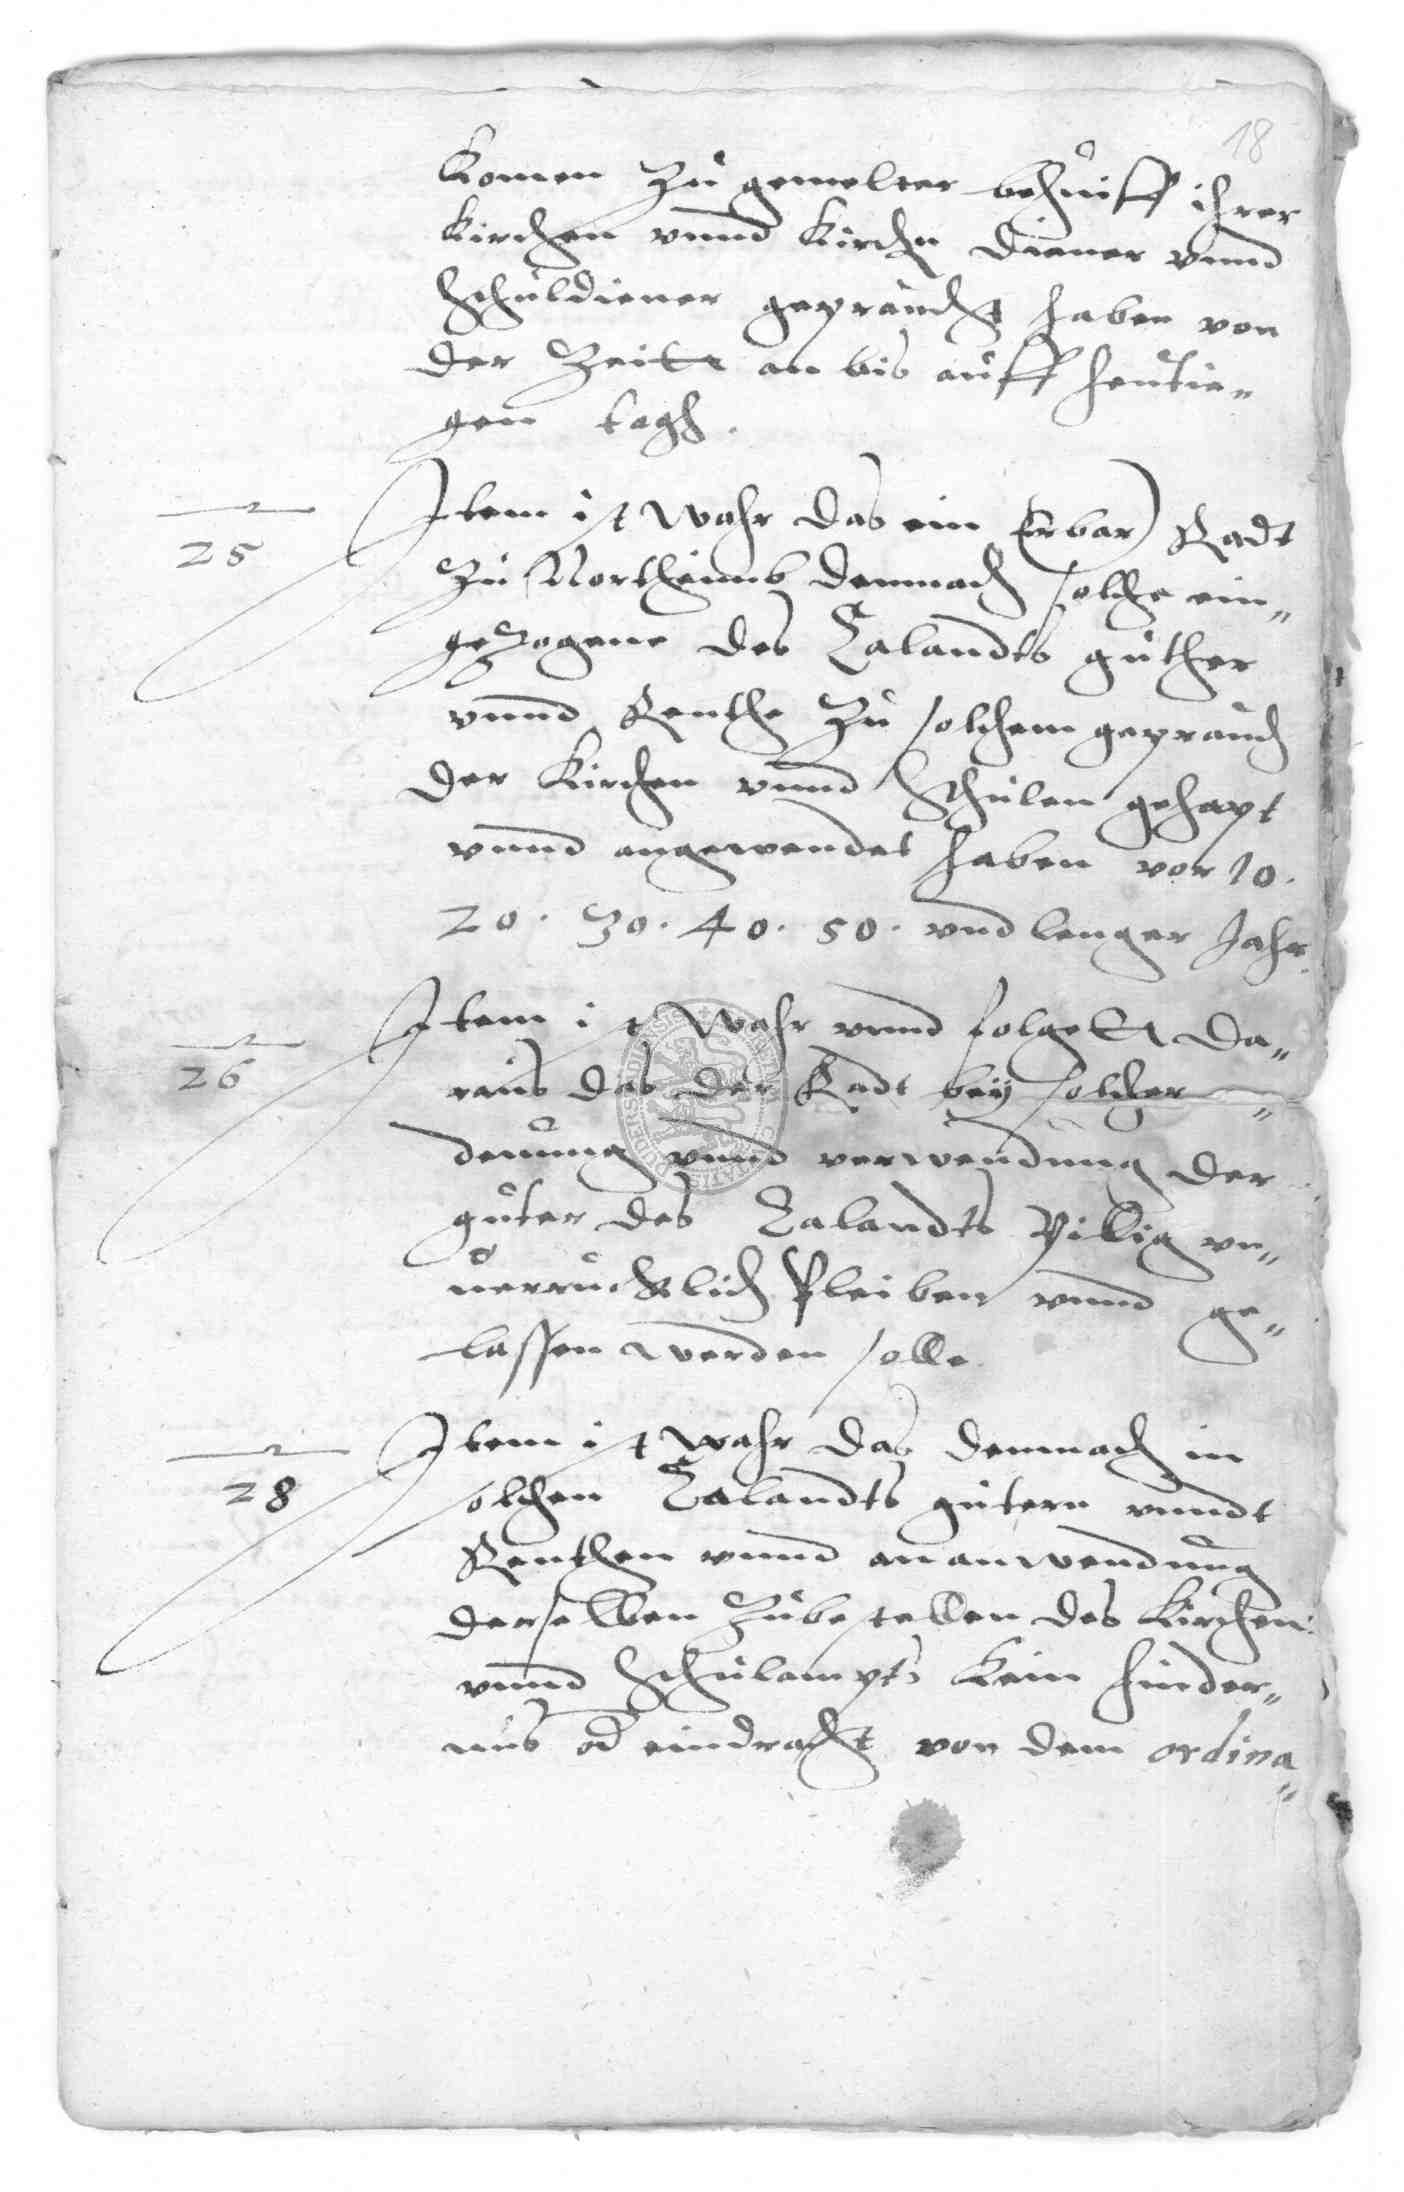 18
Komen zu gemelter behuiff ihrer
Kirchen vnnd Kirchn Diener vnnd
Schuldiener gepraucht haben von
der Zeitt an bis auff heutie„
gen tagh.
25 Item ist wahr das ein Erbar Radt
zu Northeimb demnach solche ein„
gezogene des Calandts guther
vnnd Renthe zu solchem geprauch
der Kirchen vnnd Schulen gehapt
vnnd angewendet haben vor 10.
20. 30. 40. 50. vnd lenger Jahr.
26 Item ist wahr vnnd folgett da„
raus das der Radt bey solcher „
vnnd verwendung der
guter des Calandts pillig vn„
uerrucklich pleiben vnnd ge„
lassen werden solle.
28 Item ist wahr das demnach in
solchen Calandts gutern vnndt
Renthen vnnd an anwendung
derselben zubestellen des Kirchen
vnnd Schulampts kein hinder„
nus od eindracht von dem ordina„